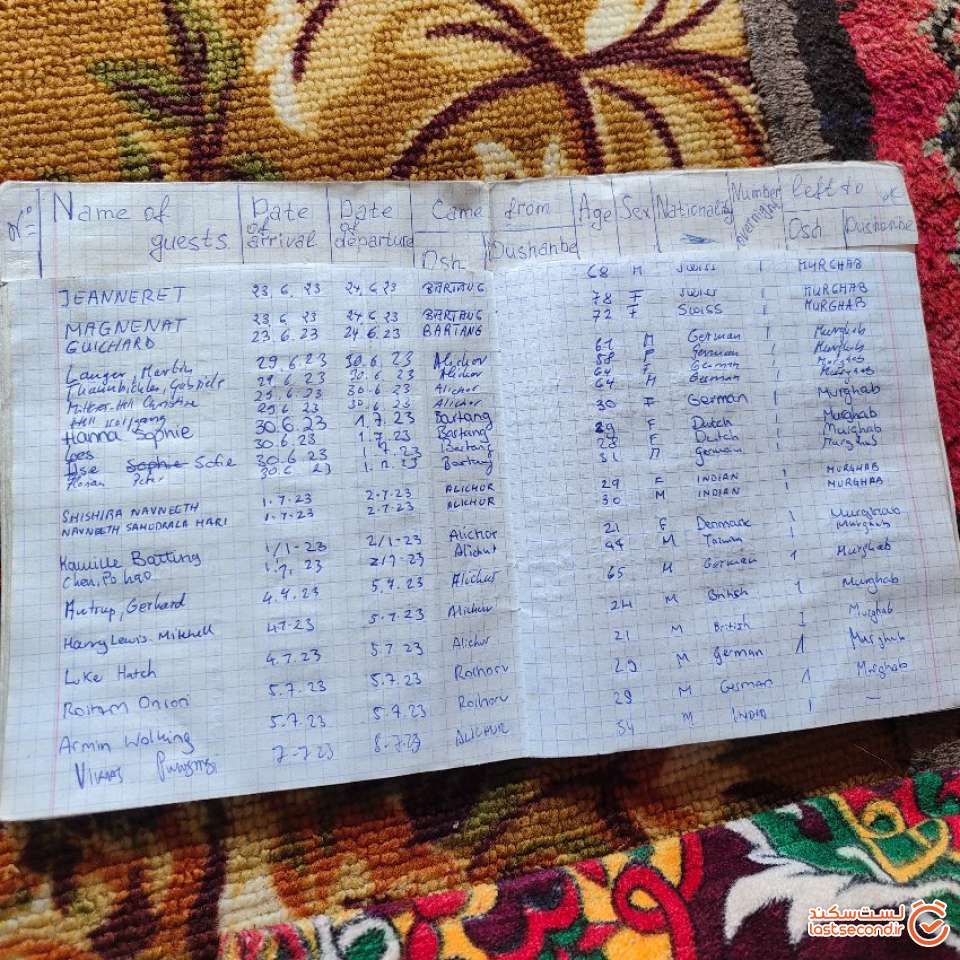 № Name of guests Date of arrival Date of departure Came from Osh Dushanbe Age Sex Nationality Number overnight left to Osh or Dushanbe
JEANNERET 23.6.23 24.6.23 BARTANG 68 M SWISS 1 MURGHAB
MAGNENAT 23.6.23 24.6.23 BARTANG 78 F SWISS 1 MURGHAB
GUICHARD 23.6.23 24.6.23 BARTANG 72 F SWISS 1 MURGHAB
Langer, Martin 29.6.23 30.6.23 Alichor 61 M German 1 Murghab
Gabriele 29.6.23 30.6.23 Alichor 58 F German 1 Murghab
Christine 29.6.23 30.6.23 Alichor 64 F German 1 Murghab
Wolfgang 29.6.23 30.6.23 Alichor 64 M German 1 Murghab
Hanna Sophie 30.6.23 1.7.23 Bartang 30 F German 1 Murghab
Loes 30.6.23 1.7.23 Bartang 29 F Dutch 1 Murghab
Ilse Sophie Sofie 30.6.23 1.7.23 Bartang 28 F Dutch 1 Murghab
Florian Peter 30.6.23 1.7.23 Bartang 31 M german 1 Murghab
SHISHIRA NAVNEETH 1.7.23 2.7.23 ALICHUR 29 F INDIAN 1 MURGHAB
NAVNEETH SAMUDRALA HARI 1.7.23 2.7.23 ALICHUR 30 M INDIAN 1 MURGHAB
Kamille Batting 1/7-23 2/7-23 Alichor 21 F Denmark 1 Murghab
Chen, Po hao 1.7.23 2/7-23 Alichur 44 M Taiwan 1 Murghab
Autrup, Gerhard 4.7.23 5.7.23 Alichur 65 M German 1 Murghab
Harry Lewis-Mitchell 4.7.23 5.7.23 Alichur 24 M British 1 Murghab
Luke Hatch 4.7.23 5.7.23 Alichur 21 M British 1 Murghab
5.7.23 5.7.23 29 M german 1 Murghab
Armin 5.7.23 5.7.23 29 M German 1 Murghab
VIKAS 7-7-23 8.7.23 ALICHUR 54 M INDIA 1 —
لست‌سکند
lastsecond.ir